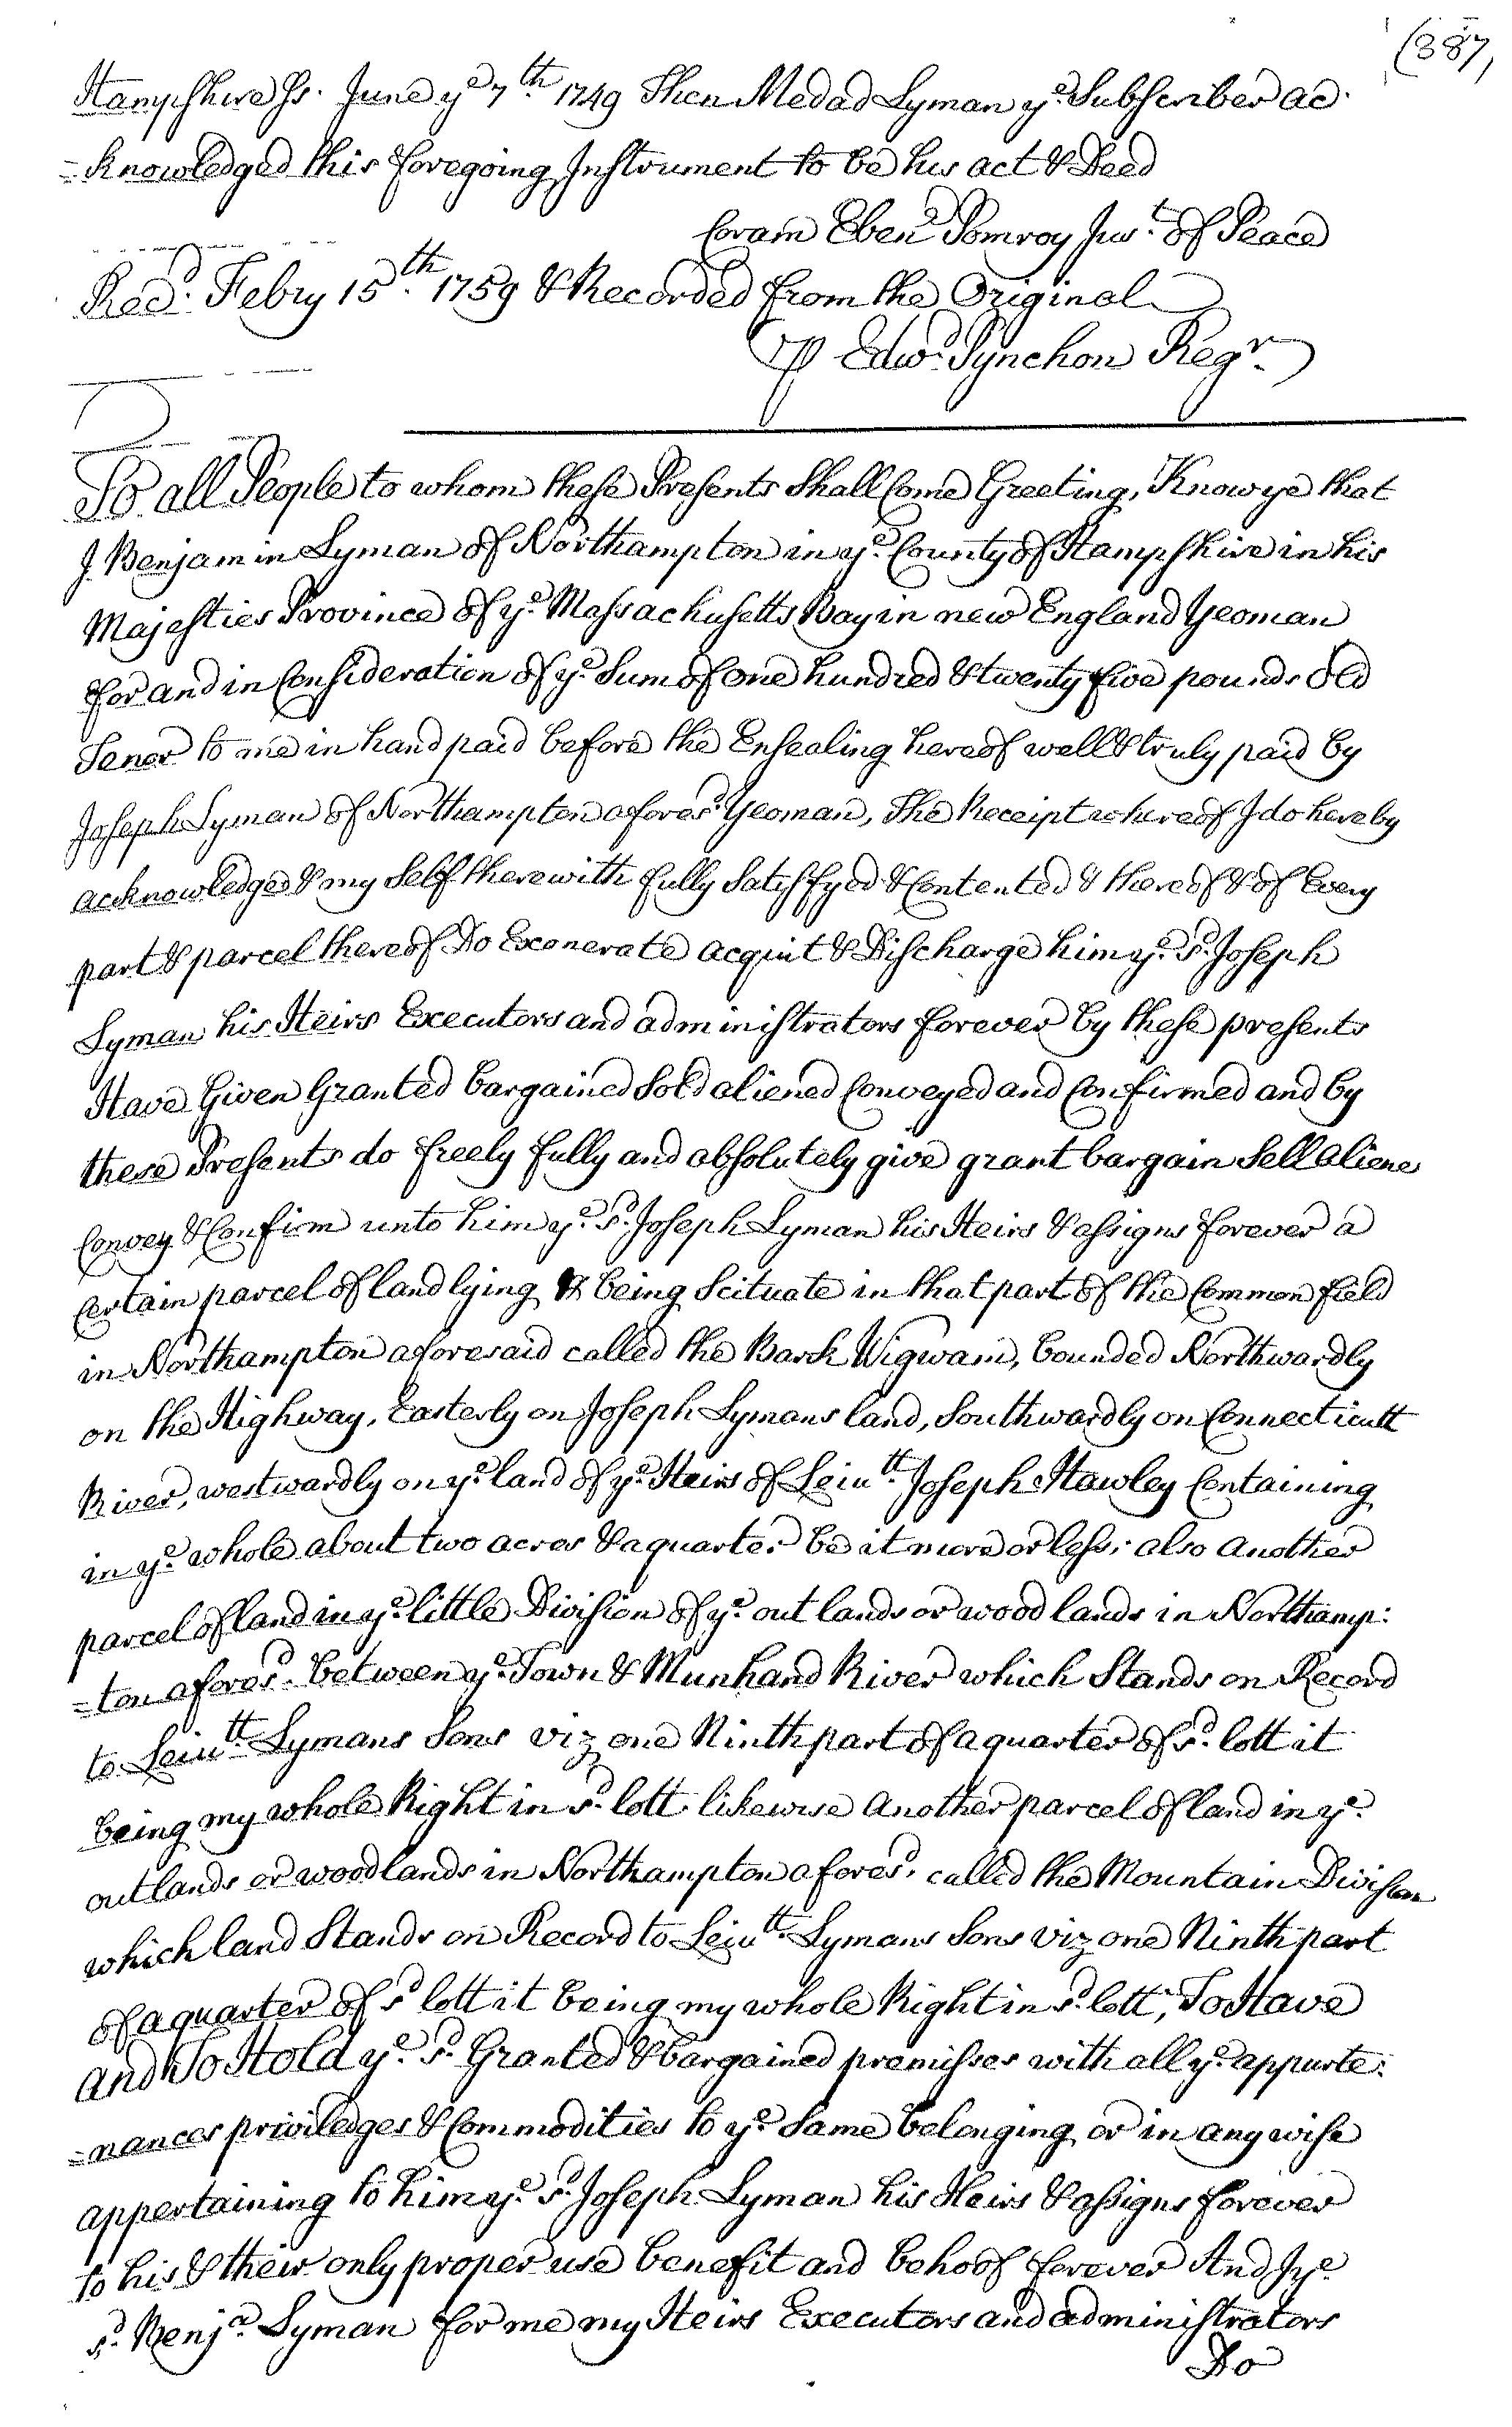 (387)
Hampshire Ss. June ye 7th 1749 Then Medad Lyman ye Subscriber ac-
-knowledged this foregoing Instrument to be his act & Deed
Coram Ebenr Pomroy Just of Peace
Recd. Febry 15th. 1759 & Recorded from the Original
P Edwd Pynchon Regr.
To all People to whom these Presents Shall Come Greeting, Know ye that
I Benjamin Lyman of Northampton in ye County of Hampshire in his
Majesties Province of ye Massachusetts Bay in new England Yeoman
for and in Consideration of ye Sum of one hundred & twenty five pounds Old
Tener to me in hand paid before the Ensealing hereof well & truly paid by
Joseph Lyman of Northampton aforesd Yeoman, The Receipt whereof I do hereby
acknowledge & my Self therewith fully Satysfyed & Contented & thereof & of Every
part & parcel thereof Do Exonerate acquit & Discharge him ye sd Joseph
Lyman his Heirs Executors and administrators forever by these presents
Have Given Granted bargained Sold aliened Conveyed and Confirmed and by
these Presents do freely fully and absolutely give grant bargain Sell aliene
Convey & Confirm unto him ye sd Joseph Lyman his Heirs & assigns forever a
Certain parcel of land lying & being Scituate in that part of the Common field
in Northampton aforesaid called the Barck Wigwam, bounded Northwardly
on the Highway, Easterly on Joseph Lymans land, Southwardly on Connecticutt
River, westwardly on ye land of ye Heirs of Leiutt Joseph Hawley Containing
in ye whole about two acres & a quarter be it more or less; also another
parcel of land in ye little Division of ye out lands or wood lands in Northamp:
=ton aforesd. between ye Town & Munhand River which Stands on Record
to Leiutt Lymans Sons viz one Ninth part of a quarter of sd. lott it
being my whole Right in sd. lott. likewise another parcel of land in ye
outlands or woodlands in Northampton aforesd. called the Mountain Division
which land Stands on Record to Leiutt Lymans Sons viz one Ninth part
of a quarter of sd lott it being my whole Right in sd. lott, To Have
and To Hold ye sd. Granted & bargained premisses with all ye appurte:
=nances priviledges & Commodities to ye same belonging or in any wise
appertaining to him ye sd. Joseph Lyman his Heirs & assigns forever
to his & their only proper use benefit and behoof forever And I ye
sd. Benja. Lyman for me my Heirs Executors and administrators
Do